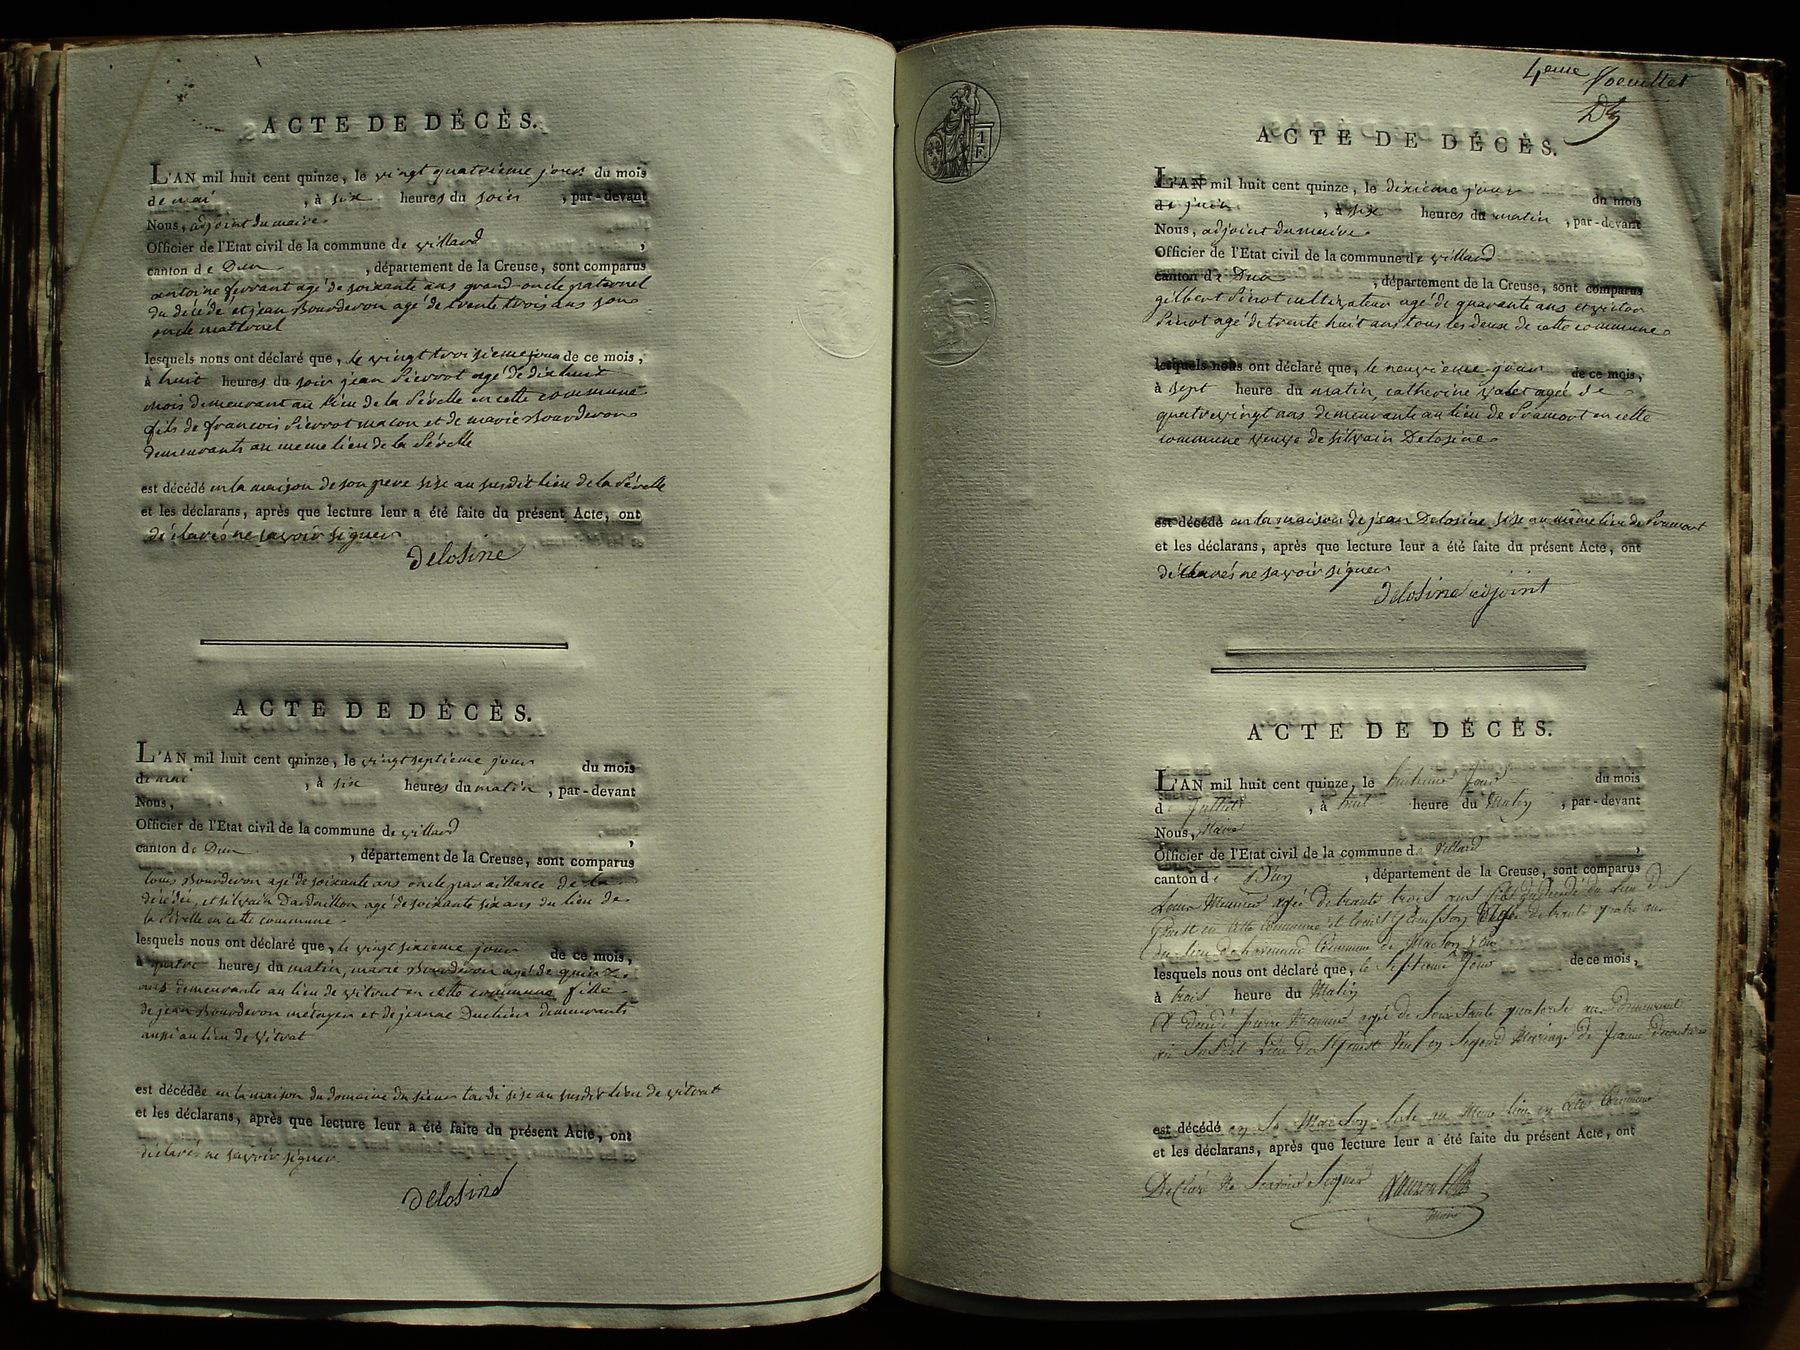 ACTE DE DÉCÈS.
L'AN mil huit cent quinze, le vingt quatrieme jour du mois
de mai, à six heures du soir, par-devant
Nous, adjoint du maire
Officier de l'Etat civil de la commune de villard,
canton de Dun, département de la Creuse, sont comparus
antoine agé de soixante ans grand oncle paternel
du décédé et jean Bourderon agé de trente trois ans son
oncle matternel
lesquels nous ont déclaré que, le vingt troisieme jour de ce mois,
à huit heures du soir jean Pierrot agé de dix huit
mois demeurant au lieu de la Pérelle en cette commune
fils de francois Pierrot macon et de marie Bourderon
demeurants au meme lieu de la Pérelle
est décédé en la maison de son pere sise au susdit lieu de la Pérelle
et les déclarans, après que lecture leur a été faite du présent Acte, ont
déclarés ne savoir signer
Delosine
ACTE DE DÉCÈS.
L'AN mil huit cent quinze, le vingt septieme jour du mois
de mai, à six heures du matin, par-devant
Nous,
Officier de l'Etat civil de la commune de villard,
canton de Dun, département de la Creuse, sont comparus
louis Bourderon agé de soixante ans oncle de la
décédée, et silvain Dardaillon agé de soixante six ans du lieu de
la Pérelle en cette commune
lesquels nous ont déclaré que, le vingt sixieme jour de ce mois,
à quatre heures du matin, marie Bourderon agé de quinze
ans demeurante au lieu de vitrat en cette commune fille
de jean Bourderon métayer et de jeanne Duchier demeurants
aussi au lieu de vitrat
est décédée en la maison du domaine du sieur tardi sise au susdit lieu de vitrat
et les déclarans, après que lecture leur a été faite du présent Acte, ont
déclarés ne savoir signer
Delosine
4eme foeuillet
1 F
ACTE DE DÉCÈS.
L'AN mil huit cent quinze, le dixieme jour du mois
de juin, à six heures du matin, par-devant
Nous, adjoint du maire
Officier de l'Etat civil de la commune de villard
canton de Dun, département de la Creuse, sont comparus
gilbert Pinot cultivateur agé de quarante ans et victor
Pinot agé de trente huit ans tous les deux de cette commune
lesquels nous ont déclaré que, le neuvieme jour de ce mois,
à sept heure du matin, catherine valet agé de
quatre vingt ans demeurante au lieu de Pramort en cette
commune veuve de silvain Delosine
est décédé en la maison de jean Delosine sise au même lieu de Pramort
et les déclarans, après que lecture leur a été faite du présent Acte, ont
déclarés ne savoir signer
Delosine adjoint
ACTE DE DÉCÈS.
L'AN mil huit cent quinze, le huitieme Jour du mois
de Juillet, à huit heure du Matin, par-devant
Nous, Maire
Officier de l'Etat civil de la commune de Villard,
canton de Dun, département de la Creuse, sont comparus
Louis Meunier agée de trante trois ans fils du lieu du
en cette commune et Louis agée de trante quatre ans
du lieu de commune de
lesquels nous ont déclaré que, le Septieme Jour de ce mois,
à trois heure du Matin
Pierre Meunier agée de Soixante quatorse ans Demeurant
au Susdit Lieu du Veuf en Segond Mariage de Jeanne
est décédé en Sa Maison Size au Meme lieu en
et les déclarans, après que lecture leur a été faite du présent Acte, ont
Declaré Ne Savoir Signer
Maire